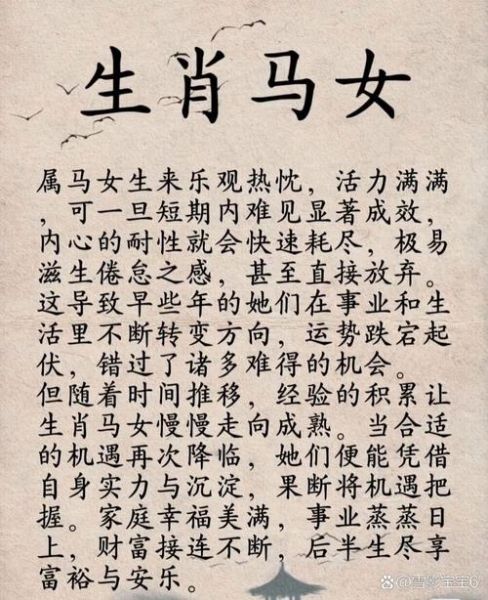 生肖马女
属马女生来乐观热忱，活力满满
，可一旦短期内难见显著成效，
内心的耐性就会快速耗尽，极易
滋生倦怠之感，甚至直接放弃。
这导致早些年的她们在事业和生
活里不断转变方向，运势跌宕起
伏，错过了诸多难得的机会。
但随着时间推移，经验的积累让
生肖马女慢慢走向成熟。当合适
的机遇再次降临，她们便能凭借
自身实力与沉淀，果断将机遇把
握。家庭幸福美满，事业蒸蒸日
上，财富接连不断，后半生尽享
富裕与安乐。